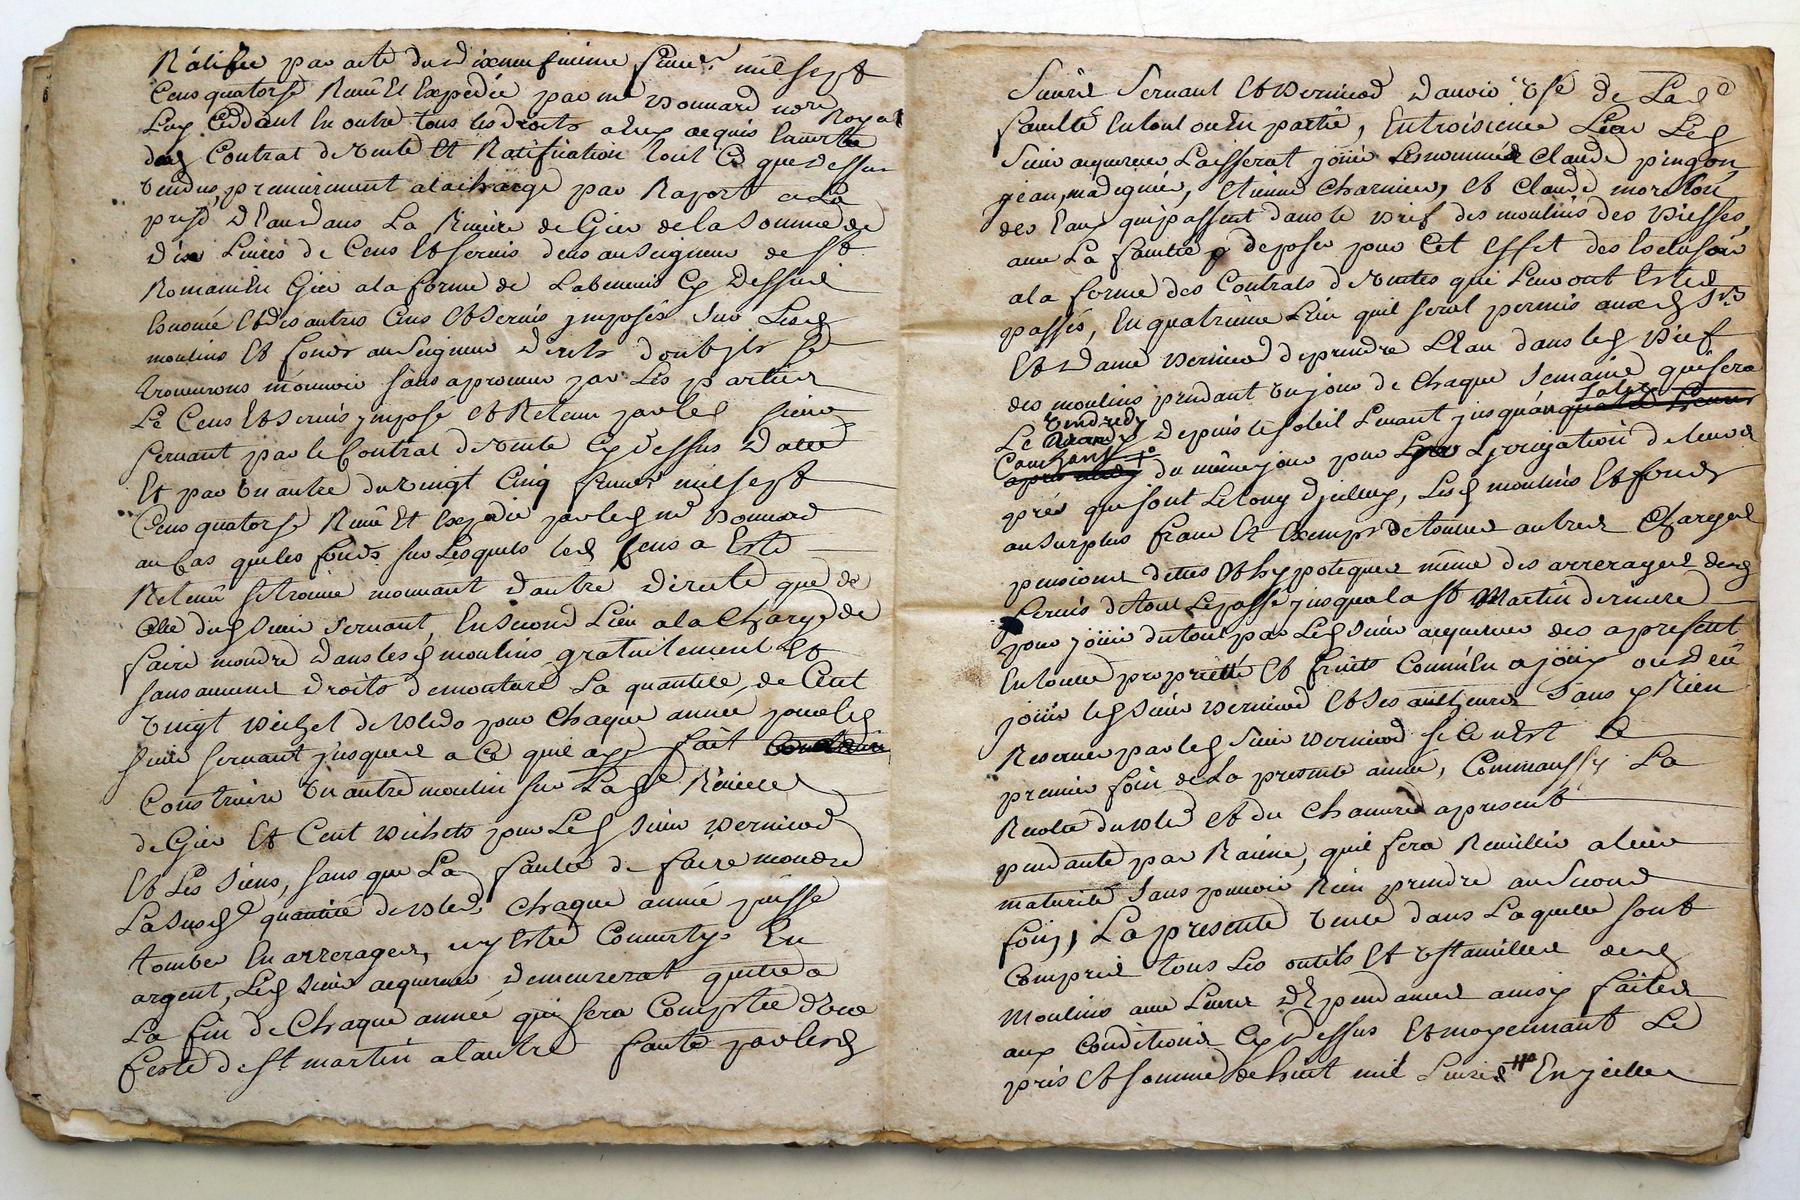 Ratifiée par acte du dixneufvieme fevrier mil sept
Cens quatorse Reçu Et Expedié par me Donnard nore Royal
Luy Ceddant En outre tous les droits a luy acquis En vertu
desd Contrat de vente Et Ratification tout Ce que dessus
vendus, premierement a la charge par Raport a la
prise d'Eau dans La Riviere de Gier de la somme de
dix Livres de Cens Et servis deus au seigneur de St
Romain En Gier a la forme de Cy Dessus
Et des autres Cens Et servis jmposés sur Lesd
moulins Et fonds au seigneur directs dont jls se
trouverons mouvoir sans aprouver par Les parties
Le Cens Et servis jmposé Et Retenu par led sieur
servant par le Contrat de vente Cy dessus datté
Et par Un autre du vingt Cinq fevrier mil sept
Cens quatorse Reçu Et Expedié par led me Donnard
au Cas que les fonds sur Lesquels led Cens a Esté
Retenu se trouve mouvant d'autre directe que de
Celle dud sieur servant, En second Lieu a la Charge de
faire moudre dans lesd moulins gratuitement Et
sans aucuns droits de mouture La quantité de Cent
vingt Bichet de Bleds pour Chaque année pour led
sieur servant jusques a Ce qu'il aye fait
Construire Un autre moulin sur Lad Riviere
de Gier Et Cent Bichets pour Led sieur Vernicod
Et Les siens, sans que La faculté de faire moudre
La susd quantité de Bled, Chaque année puisse
tomber En arrerages, ny Estre Convertye En
argent, Led sieur acquereur demeurerat quitte a
La fin de Chaque année qui sera Comptée d'une
feste de St martin a l'autre faute par lesd
Sieurs Servant Et Vernicod d'avoir Usé de Lad
faculté En tout ou En partie, En troisieme Lieu Led
sieur acquereur Laisserat jouir Les nommés Claude pingon,
jean madignier, Etienne Charnier, Et Claude moreton
des Eaux qui passent dans le Bief des moulins des Vießes,
avec La faculté de poser pour Cet Effet des Ecluseaux
a la forme des Contrats de ventes qui Leur ont Estés
passés, En quatrieme Lieu qu'il serat permis auxd Srs
Et Dame Vernicod de prendre L'Eau dans led Bief
des moulins pendant Un jour de Chaque Semaine qui sera
Le vendredy depuis le soleil Levant jusqu'au
Couchant du même jour pour L'jrrigation de leurs
prés qui sont Le long d'jcelluy, Lesd moulins Et fonds
au surplus franc Et Exempt de toutes autres Charges
pensions dettes Et hypoteques même des arrerages desd
servis de tout Le passé jusqu'a la St Martin derniere
pour jouir du tout par Led sieur acquereur des apresent
En toute proprietté Et fruits Comme En a jouy ou dû
jouir led sieur Vernicod Et ses autheurs Sans y Rien
Reserver par led sieur Vernicod si Ce n'Est Le
premier foin de La presente année, Comm'aussy La
Recolte du Bled Et du Chanvre apresent
pendante par Racine, qu'il fera Recuillir a leur
maturité sans pouvoir Rien prendre au second
foin, La presente vente dans Laquelle sont
Compris tous Les outils Et Ustancilles desd
Moulins avec Leurs dependances ainsy faites
aux Conditions Cy dessus Et moyennant Le
prix Et somme de huit mil Livres En jcelle